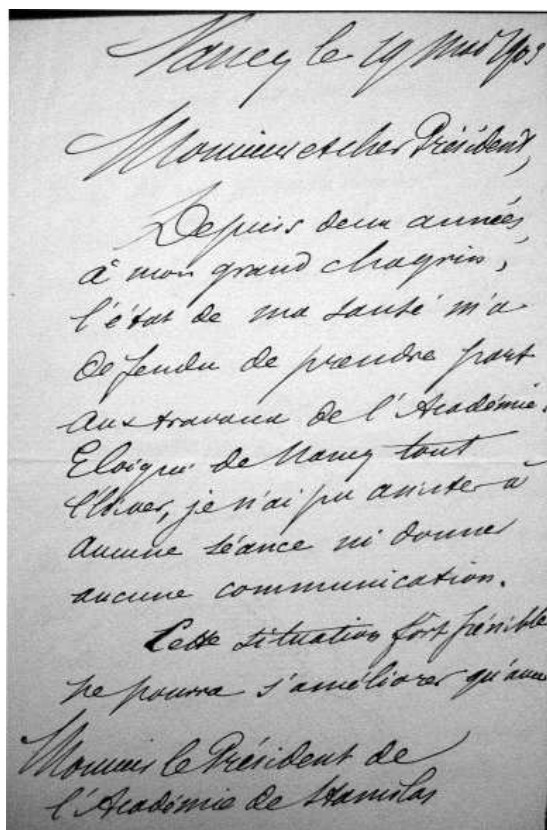 Nancy le 19 mai 1903
Monsieur et cher Président,
Depuis deux années,
à mon grand chagrin,
l'état de ma santé m'a
défendu de prendre part
aux travaux de l'Académie.
Eloigné de Nancy tout
l'hiver, je n'ai pu assister à
aucune séance ni donner
aucune communication.
Cette situation fort pénible
ne pourra s'améliorer qu'avec
Monsieur le Président de
l'Académie de Stanislas